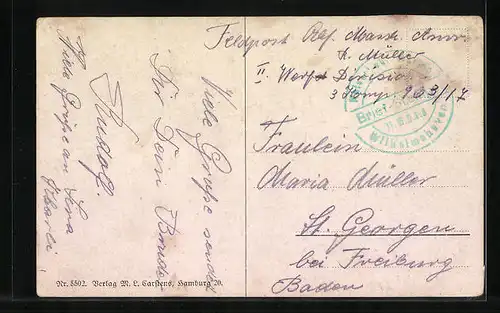 Feldpost Abs. Masch. Anw.
R. Müller
II. Werft Division
3 Komp. 963/17
Brief
Wilhelmshaven
Fräulein
Maria Müller
St. Georgen
bei Freiburg
Baden
Viele Grüße sendet
Dir Dein Bruder
Rudolf.
Viele Grüße an Lina
Nr. 5502. Verlag M. L. Carstens, Hamburg 20.